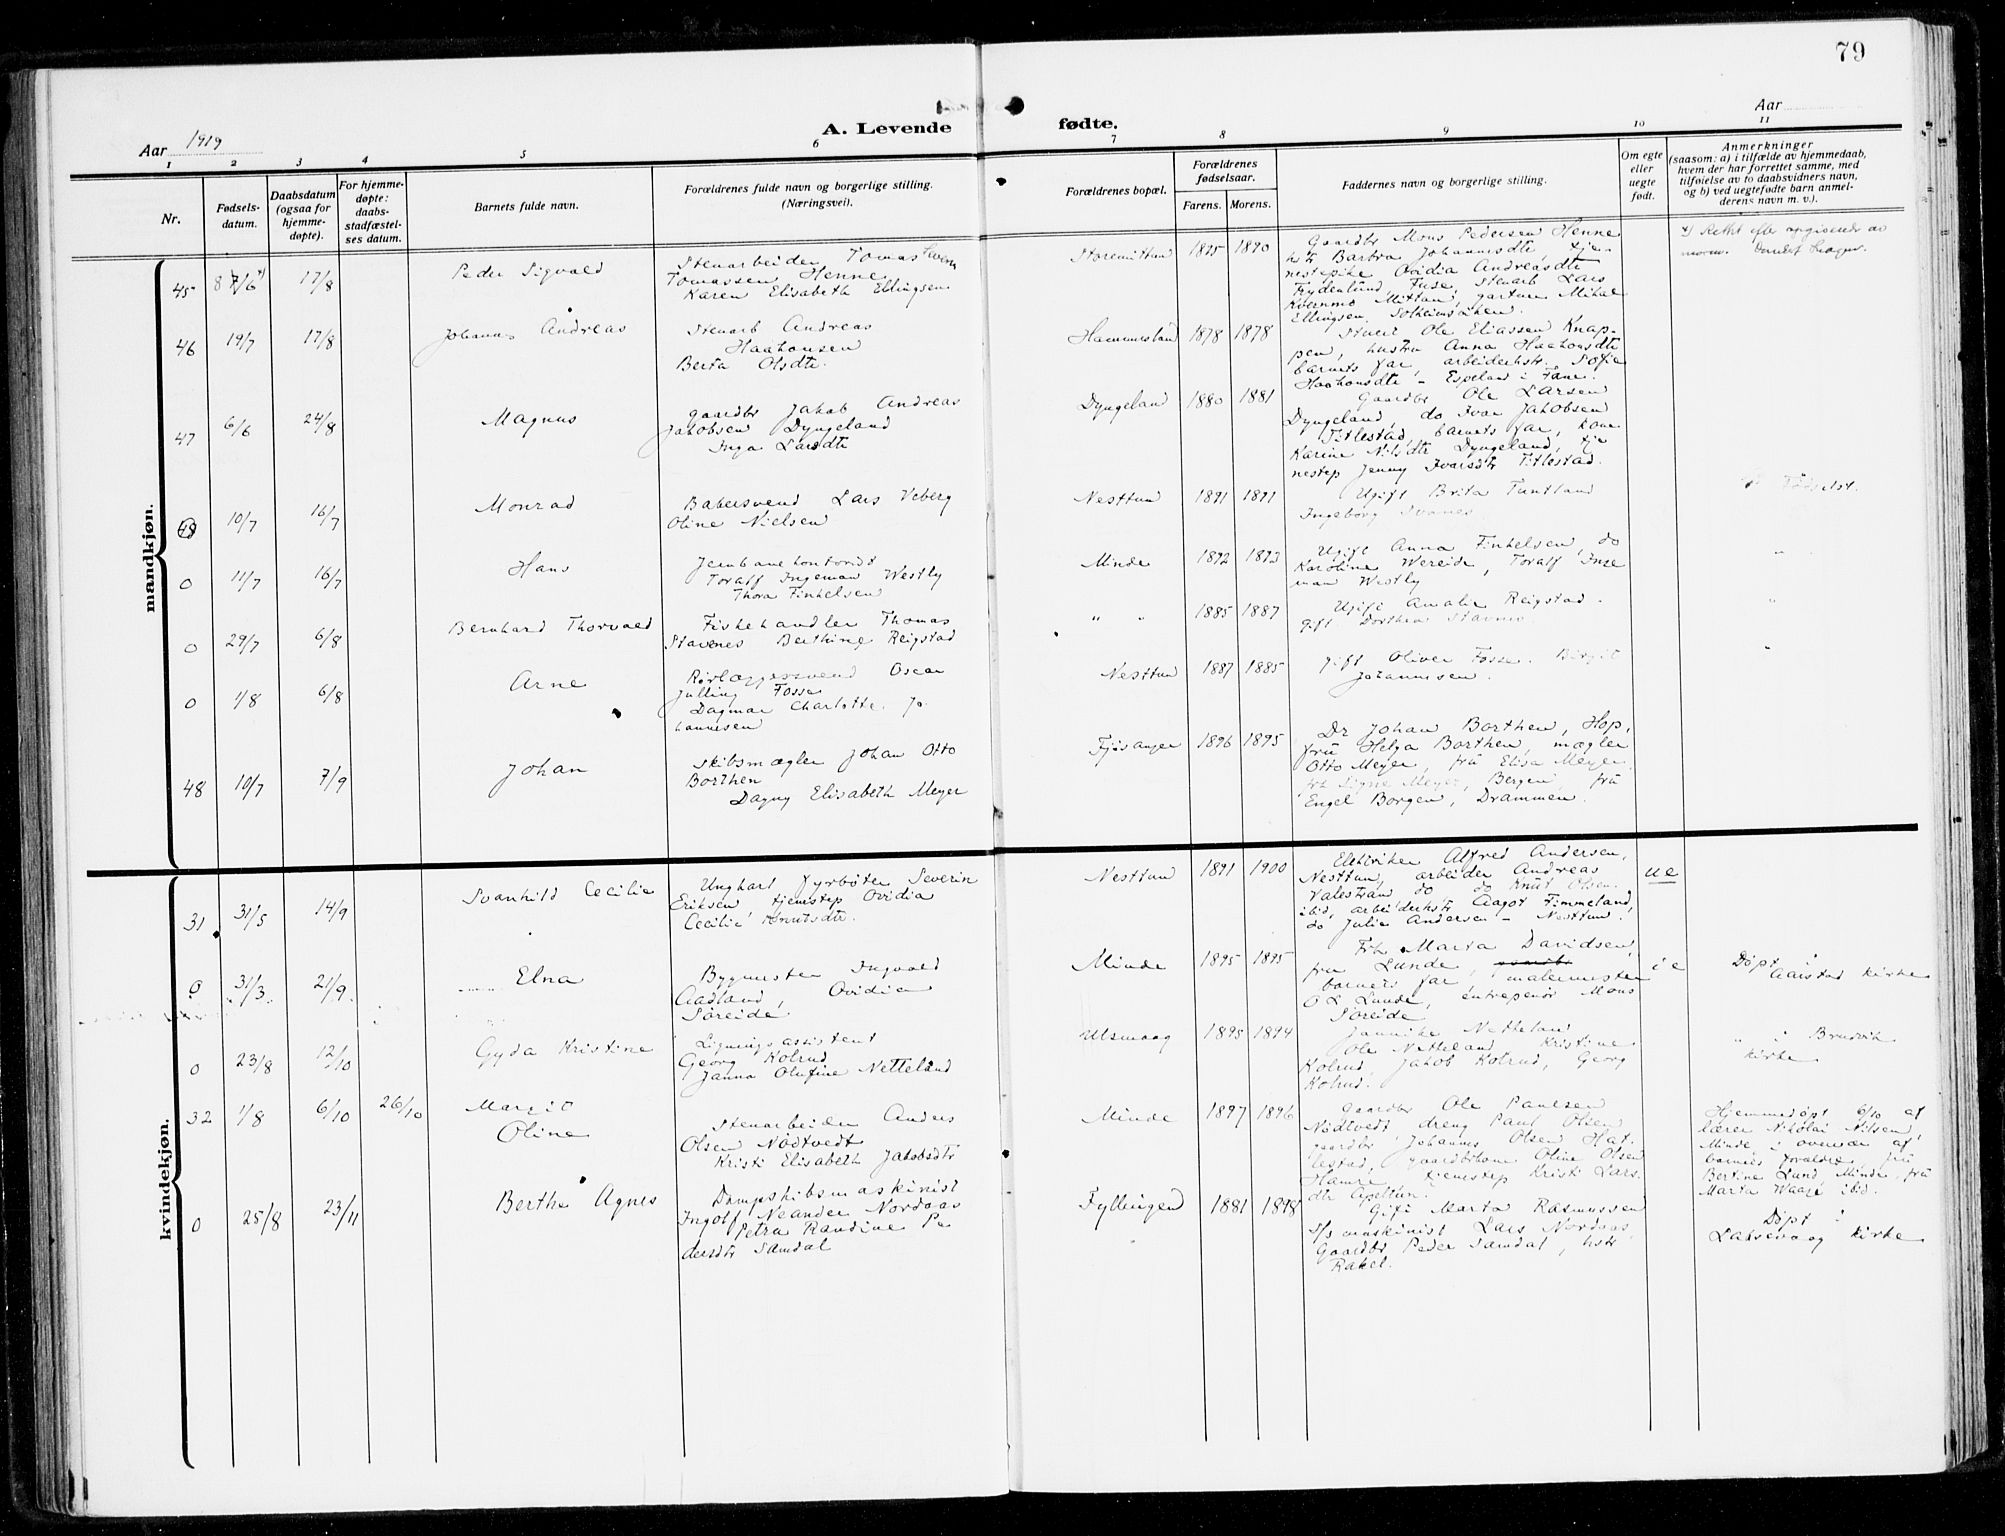 79
Aar 1919
A. Levende fødte.
Aar
1 2 3 4 5 6 7 8 9 10 11
Nr.
Fødsels-
datum.
Daabsdatum
(ogsaa for
hjemme-
døpte).
For hjemme-
døpte:
daabs-
stadfæstel-
ses datum.
Barnets fulde navn.
Forældrenes fulde navn og borgerlige stilling.
(Næringsvei).
Forældrenes bopæl.
Forældrenes
fødselsaar.
Farens. Morens.
Faddernes navn og borgerlige stilling.
Om egte
eller
uegte
født.
Anmerkninger
(saasom: a) i tilfælde av hjemmedaab,
hvem der har forrettet samme, med
tilføielse av to daabsvidners navn,
og b) ved uegtefødte barn anmel-
derens navn m. v.).
mandkjøn.
45 8 7/6 17/8
Peder Sigvald
Stenarbeider Tomas
Tomassen Henne
Karen Elisabeth Ellingsen
Storemittun 1895 1890
Gaardbr Mons Pedersen Henne
hstr Barbra Johannesdtr, tje
nestepike Ovidia Andreasdtr
Frydenlund, Fuse, stenarb Lars
Kvernmo Mittun, gartner Mikal
Ellingsen, Solheimsviken.
Rettet efter opgivende av
46 19/7 17/8
Johannes Andreas
Stenarb Andreas
Haakonsen
Berta Olsdtr.
Hammersland 1878 1878
Ole Eliassen Knap-
pen, hustru Anna Haakonsdtr
barnets far, arbeiderhstr. Sofie
Haakonsdtr - Espeland i Fane.
47 6/6 24/8
Magnus
gaardbr Jakob Andreas
Jakobsen Dyngeland
Inga Larsdtr
Dyngeland 1880 1881
Gaardbr Ole Larsen
Dyngeland, do Ivar Jakobsen
Titlestad, barnets far, kone
Karine Nilsdtr Dyngeland, tje
nestep Jenny Ivarsdtr Titlestad.
48 10/7 16/7
Monrad
Bakersvend Lars Veberg
Oline Nielsen
Nesttun 1891 1891
Ugift Brita Tuntland
Ingeborg Svanes
Fødselst.
0 11/7 16/7
Hans
Jernbanekontorist
Toralf Ingeman Westly
Thora Finkelsen
Minde 1892 1893
Ugift Anna Finkelsen, do
Karoline Wereide, Toralf Inge
man Westly
"
0 29/7 6/8
Bernhard Thorvald
Fiskehandler Thomas
Stavenes Berthine Reigstad
" " 1885 1887
Ugift Amalie Reigstad.
gift Dorthea Stavnes.
"
0 1/8 6/8
Arne
Rørlæggersvend Oscar
Julling Fosse
Dagmar Charlotte Jo
hannesen
Nesttun 1887 1885
gift Oliver Fosse. Birgit
Johannesen.
"
48 10/7 7/9
Johan
Skibsmægler Johan Otto
Borthen
Dagny Elisabeth Meyer
Fjøsanger 1896 1895
Dr Johan Borthen, Hop,
fru Helga Borthen, mægler
Otto Meyer, fru Elisa Meyer
frk Signe Meyer, Bergen, fru
Engel Borgen, Drammen.
kvindekjøn.
31 31/5 14/9
Svanhild Cecilie
Ungkarl fyrbøter Severin
Eriksen tjenestep Ovidia
Cecilie Knutsdtr.
Nesttun 1891 1900
Elektriker Alfred Andersen,
Nesttun, arbeider Andreas
Valestrand do do Knut Olsen.
ibid, arbeiderhstr Aagot Timmeland,
do Julie Andersen - Nesttun.
ue
0 31/3 21/9.
Elna
Bygmester Ingvald
Aadland, Ovidia
Søreide
Minde 1895 1895
Frk Marta Davidsen,
fru Lunde,
barnets far malermester
O L Lunde, entrepenør Mons
Søreide
ie
Døpt i
Aarstad kirke
0 23/8 12/10
Gyda Kristine
Ligningsassistent
Georg Kolrud
Janna Olufine Netteland
Ulsmaag 1895 1894
Jannike Netteland
Ole Netteland Kristine
Kolrud, Jakob Kolrud, Georg
Kolrud.
" i Bruvik
kirke
32 1/8 6/10 26/10
Margit
Oline
Stenarbeider Anders
Olsen Nødtvedt
Kristi Elisabeth Jakobsdtr
Minde 1897 1896
gaardbr Ole Paulsen
Nødtvedt dreng Paul Olsen
gaardbr Johannes Olsen Hat-
lestad, gaardbrkone Oline Olsen
Hamre tjenestep Kristi Lars
dtr Apeltun.
Hjemmedøpt 6/10 af
lærer Nikolai Nilsen,
Minde i overvær af
barnets forældre, fru
Bertine Lund, Minde, fru
Marta Waage ibid.
0 25/8 23/11
Berthe Agnes
Dampskibsmaskinist
Ingolf Neander Nordaas
Petra Randine Pe
dersdtr Samdal
Fyllingen 1881 1898
Gift Marta Rasmussen
S/s maskinist Lars Nordaas
Gaardbr Peder Samdal, hstr
Rakel.
Døpt i
Laksevaag kirke